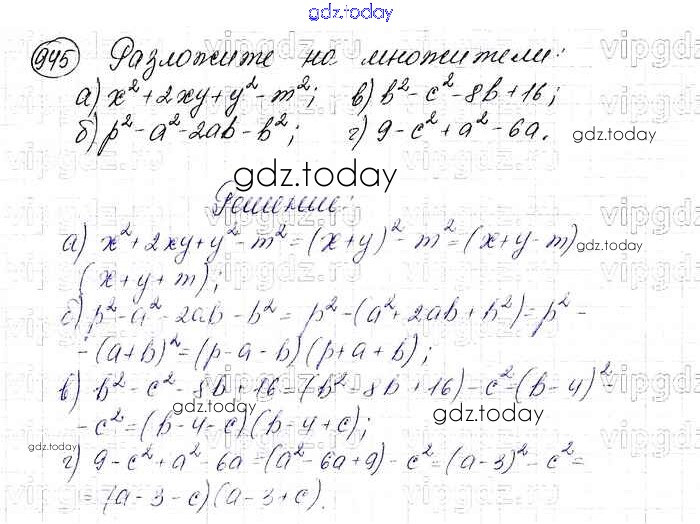 gdz.today
945 Разложите на множители:
а) x² + 2xy + y² - m²; в) b² - c² - 8b + 16;
б) p² - a² - 2ab - b²; г) 9 - c² + a² - 6a.
gdz.today
gdz.today
Решение:
а) x² + 2xy + y² - m² = (x + y)² - m² = (x + y - m)
gdz.today
(x + y + m);
б) p² - a² - 2ab - b² = p² - (a² + 2ab + b²) = p² -
- (a + b)² = (p - a - b)(p + a + b);
в) b² - c² - 8b + 16 = (b² - 8b + 16) - c² = (b - 4)²
gdz.today
- c² = (b - 4 - c)(b - 4 + c);
gdz.today
gdz.today
г) 9 - c² + a² - 6a = (a² - 6a + 9) - c² = (a - 3)² - c² =
= (a - 3 - c)(a - 3 + c).